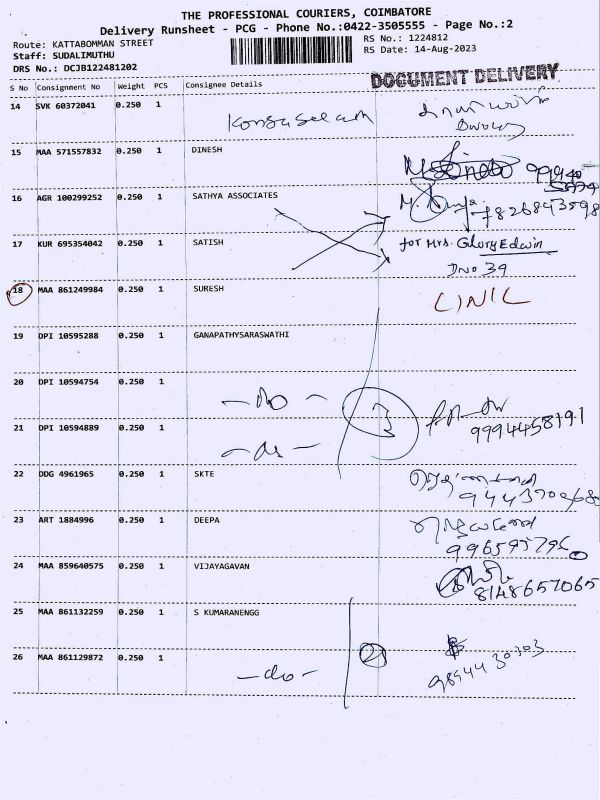 THE PROFESSIONAL COURIERS, COIMBATORE
Delivery Runsheet - PCG - Phone No.:0422-3505555 - Page No.:2
Route: KATTABOMMAN STREET
RS No.: 1224812
Staff: SUDALIMUTHU
RS Date: 14-Aug-2023
DRS No.: DCJB122481202
DOCUMENT DELIVERY
S No Consignment No Weight PCS Consignee Details
14 SVK 60372041 0.250 1
15 MAA 571557832 0.250 1 DINESH
16 AGR 100299252 0.250 1 SATHYA ASSOCIATES
7826843598
17 KUR 695354042 0.250 1 SATISH for Mrs. Glory Edwin
DNo 39
18 MAA 861249984 0.250 1 SURESH
19 DPI 10595288 0.250 1 GANAPATHYSARASWATHI
20 DPI 10594754 0.250 1
-do-
3
21 DPI 10594889 0.250 1
9994458191
-do-
22 DDG 4961965 0.250 1 SKTE
23 ART 1884996 0.250 1 DEEPA
24 MAA 859640575 0.250 1 VIJAYAGAVAN
8148657065
25 MAA 861132259 0.250 1 S KUMARANENGG
26 MAA 861129872 0.250 1
2
-do-